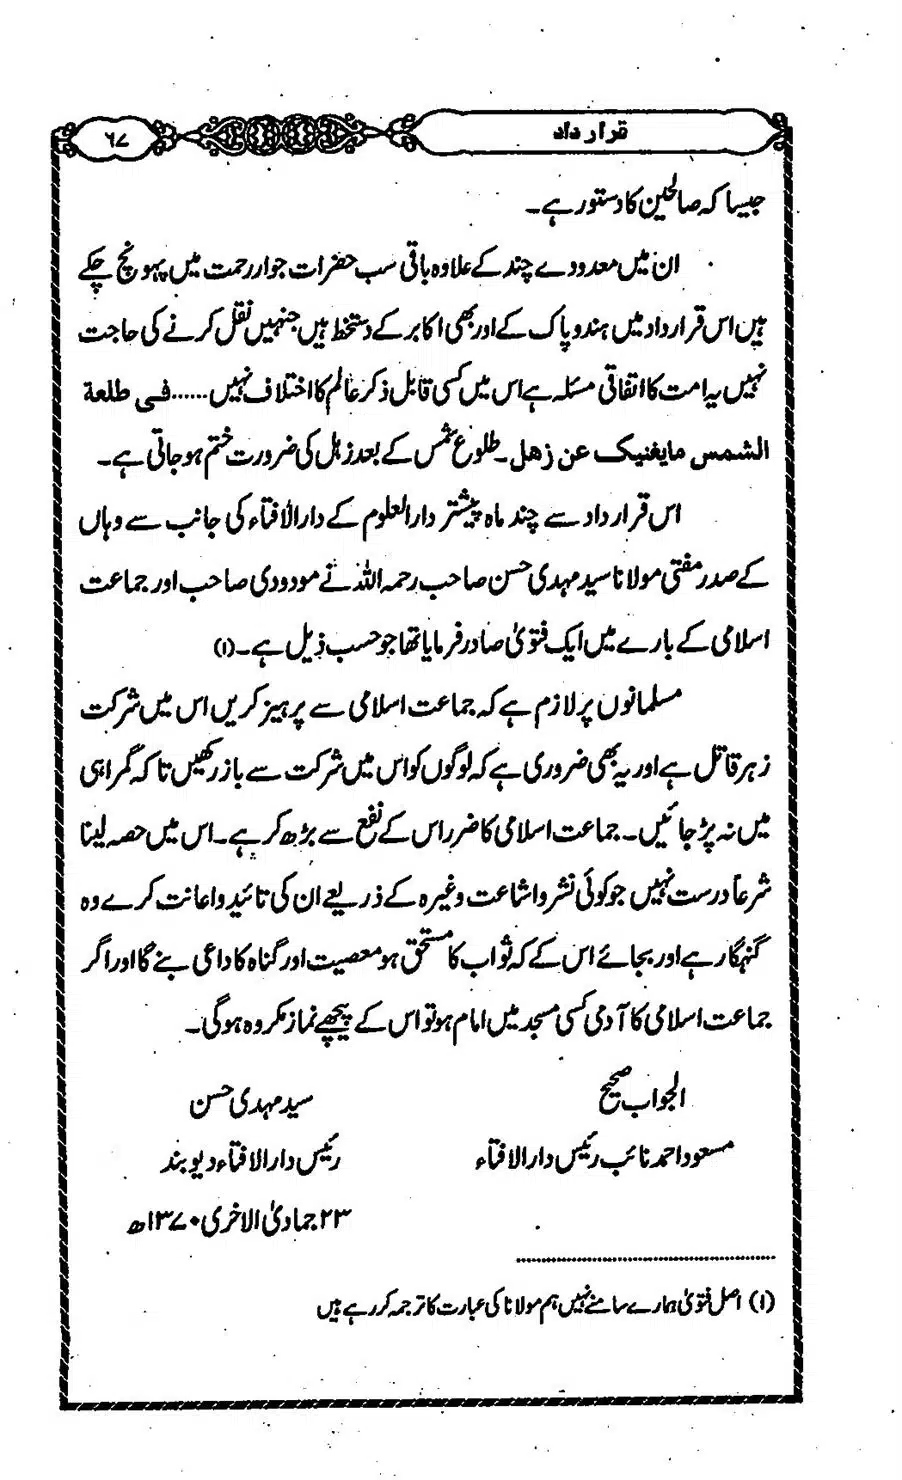 قرار داد ۶۷
جیسا کہ صالحین کا دستور ہے۔
ان میں معدودے چند کے علاوہ باقی سب حضرات جوار رحمت میں پہونچ چکے
ہیں اس قرار داد میں ہند و پاک کے اور بھی اکابر کے دستخط ہیں جنہیں نقل کرنے کی حاجت
نہیں یہ امت کا اتفاقی مسئلہ ہے اس میں کسی قابل ذکر عالم کا اختلاف نہیں......فی طلعة
الشمس مایغنیک عن زھل۔ طلوع شمس کے بعد زہل کی ضرورت ختم ہو جاتی ہے۔
اس قرار داد سے چند ماہ پیشتر دارالعلوم کے دارالافتاء کی جانب سے وہاں
کے صدر مفتی مولانا سید مہدی حسن صاحب رحمہ اللہ نے مودودی صاحب اور جماعت
اسلامی کے بارے میں ایک فتویٰ صادر فرمایا تھا جو حسب ذیل ہے۔(۱)
مسلمانوں پر لازم ہے کہ جماعت اسلامی سے پرہیز کریں اس میں شرکت
زہر قاتل ہے اور یہ بھی ضروری ہے کہ لوگوں کو اس میں شرکت سے باز رکھیں تا کہ گمراہی
میں نہ پڑ جائیں۔ جماعت اسلامی کا ضرر اس کے نفع سے بڑھ کر ہے۔ اس میں حصہ لینا
شرعاً درست نہیں جو کوئی نشر و اشاعت وغیرہ کے ذریعے ان کی تائید و اعانت کرے وہ
گنہگار ہے اور بجائے اس کے کہ ثواب کا مستحق ہو معصیت اور گناہ کا داعی بنے گا اور اگر
جماعت اسلامی کا آدمی کسی مسجد میں امام ہو تو اس کے پیچھے نماز مکروہ ہو گی۔
الجواب صحیح سید مہدی حسن
مسعود احمد نائب رئیس دار الافتاء رئیس دار الافتاء دیو بند
۲۳ جمادیٰ الاخریٰ ۱۳۷۰ھ
(۱) اصل فتویٰ ہمارے سامنے نہیں ہم مولانا کی عبارت کا ترجمہ کر رہے ہیں